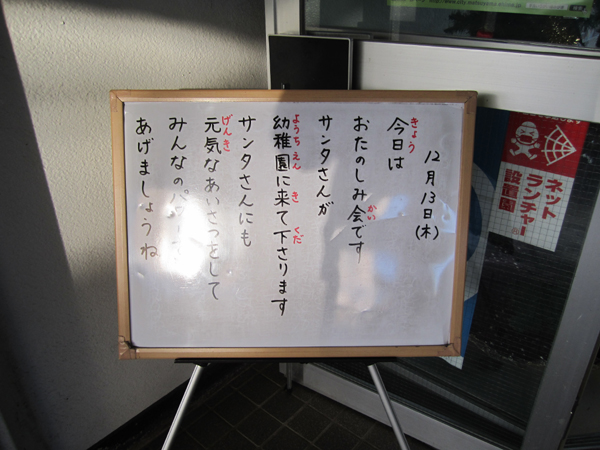 12月13日(木)
今日は
きょう
おたのしみ会です
かい
サンタさんが
幼稚園に来て下さります
ようちえん き くだ
サンタさんにも
元気なあいさつをして
げんき
みんなのパ
あげましょうね
ネット
ランチャー
設置園